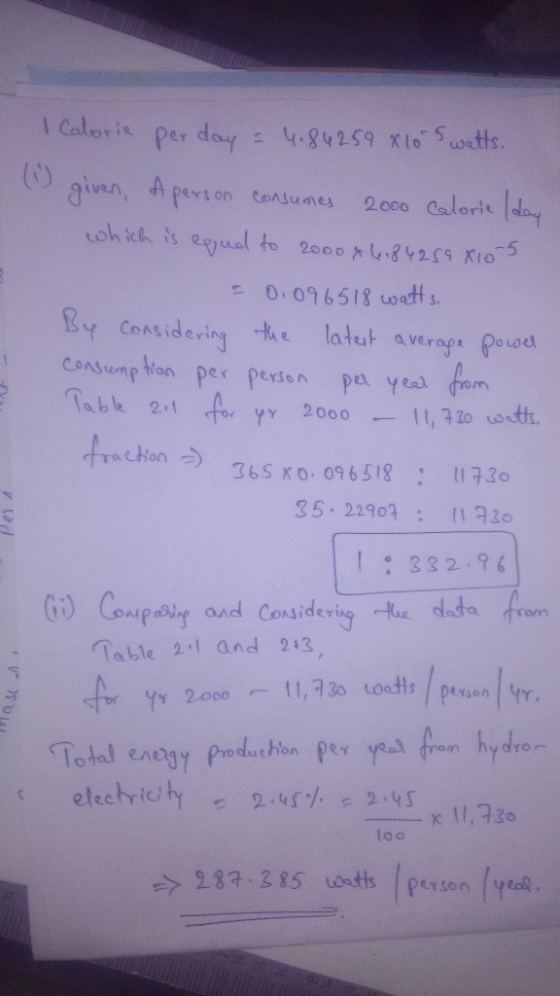 1 Calorie per day = 4.84259 x10^-5 watts.
(i) given, A person consumes 2000 Calorie/day
which is equal to 2000 x 4.84259 x10^-5
= 0.096518 watts.
By considering the latest average power
consumption per person per year from
Table 2.1 for yr 2000 — 11,730 watts.
fraction => 365 x 0.096518 : 11730
35.22907 : 11730
1 : 332.96
(ii) Comparing and considering the data from
Table 2.1 and 2.3,
for yr 2000 - 11,730 watts/person/yr.
Total energy production per year from hydro-
electricity = 2.45% = 2.45/100 x 11,730
=> 287.385 watts/person/year.